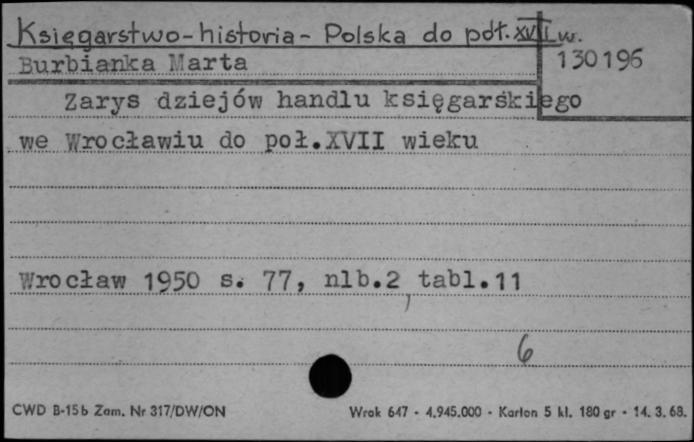 Księgarstwo-historia-Polska do poł.XVII w.
Burbianka Marta
130196
Zarys dziejów handlu księgarskiego
we Wrocławiu do poł.XVII wieku
Wrocław 1950 s. 77, nlb.2, tabl.11
6
CWD B-15b Zam. Nr 317/DW/ON
Wrak 647 - 4.945.000 - Karton 5 kl. 180 gr - 14. 3. 68.